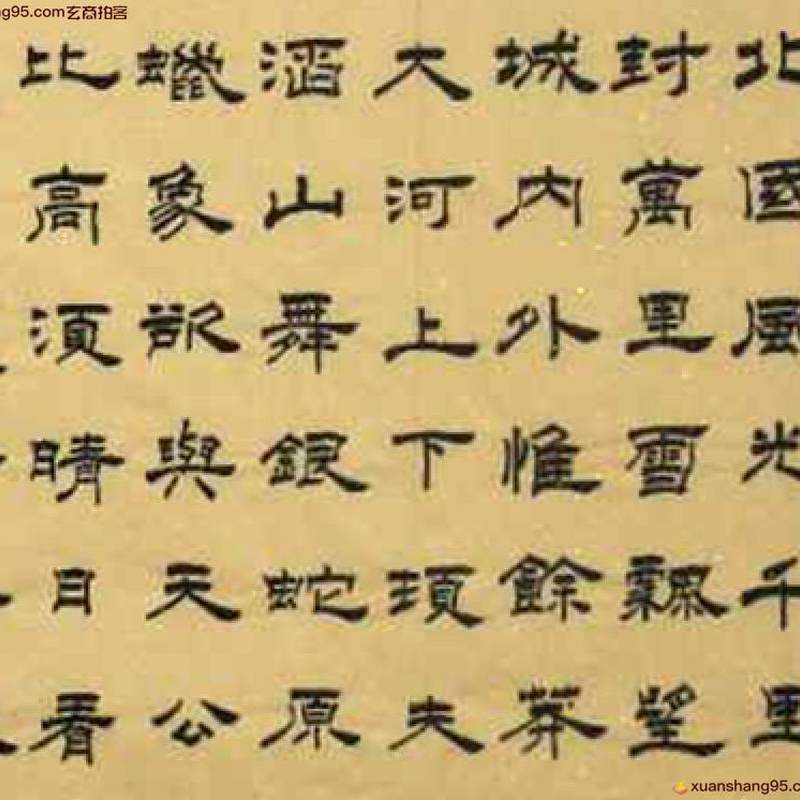 ng95.com玄商拍客
北國風光千里
封萬里雪飄望
城內外惟餘莽
大河上下頓失
滔山舞銀蛇原
蠟象欲與天公
比高須晴日看
xuanshang95.c